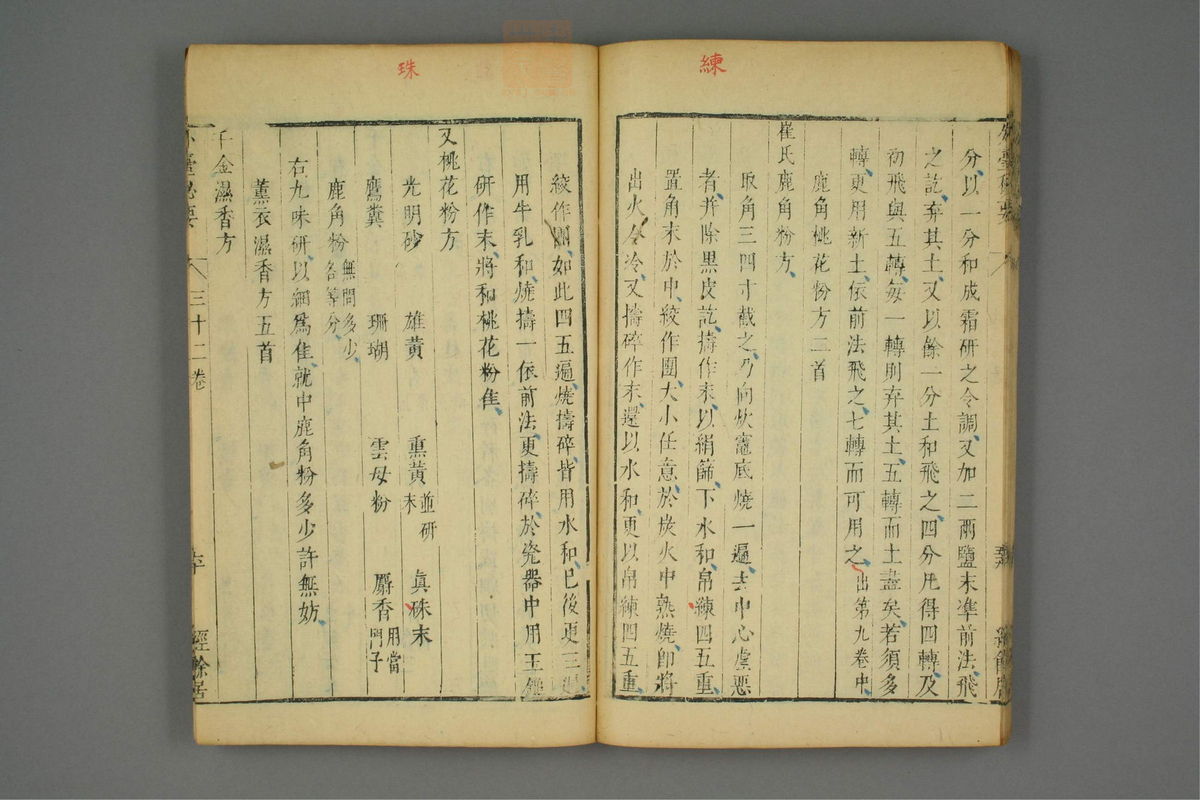 練
分以一分和成霜研之令調又加二兩鹽末準前法飛
之訖弃其土又以餘一分土和飛之四分凡得四轉及
初飛與五轉每一轉則弃其土五轉而土盡矣若須多
轉更用新土依前法飛之七轉而可用之出第九卷中
鹿角桃花粉方二首
崔氏鹿角粉方
取角三四寸截之乃向炊竈底燒一遍去中心虛惡
者并除黑皮訖擣作末以絹篩下水和帛練四五重
置角末於中絞作團大小任意於炭火中熟燒即將
出火令冷又擣碎作末還以水和更以帛練四五重
珠
絞作團如此四五遍燒擣碎皆用水和已後更三遍
用牛乳和燒擣一依前法更擣碎於瓷器中用玉
研作末將和桃花粉佳
又桃花粉方
光明砂 雄黄 熏黄並研末 眞硃末
鷹糞 珊瑚 雲母粉 麝香用當門子
鹿角粉無問多少各等分
右九味研以細爲佳就中鹿角粉多少許無妨
薰衣濕香方五首
千金濕香方
臺秘要 三十二卷 經餘居